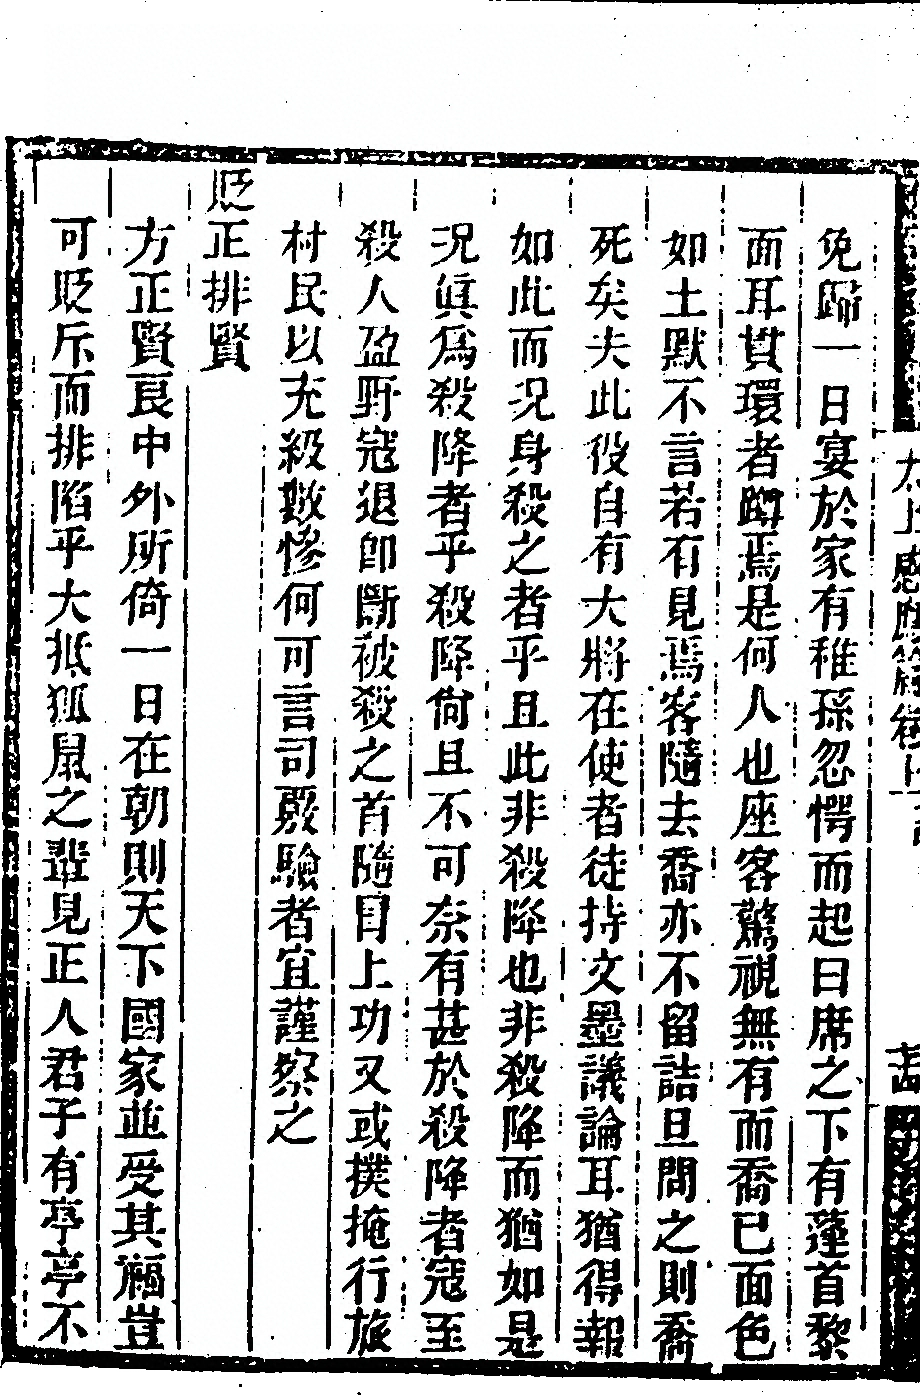 免歸一日宴於家有稚孫忽愕而起曰席之下有蓬首黎
面耳貫環者蹲焉是何人也座客驚視無有而喬已面色
如土默不言若有見焉客隨去喬亦不留詰旦問之則喬
死矣夫此役自有大將在使者徒持文墨議論耳猶得報
如此而況身殺之者乎且此非殺降也非殺降而猶如是
況眞爲殺降者乎殺降尙且不可奈有甚於殺降者寇至
殺人盈野寇退卽斷被殺之首隨冐上功又或撲掩行旅
村民以充級數慘何可言司覈驗者宜謹察之
貶正排賢
方正賢良中外所倚一日在朝則天下國家並受其福豈
可貶斥而排陷乎大抵狐鼠之輩見正人君子有亭亭不
太上感應篇卷